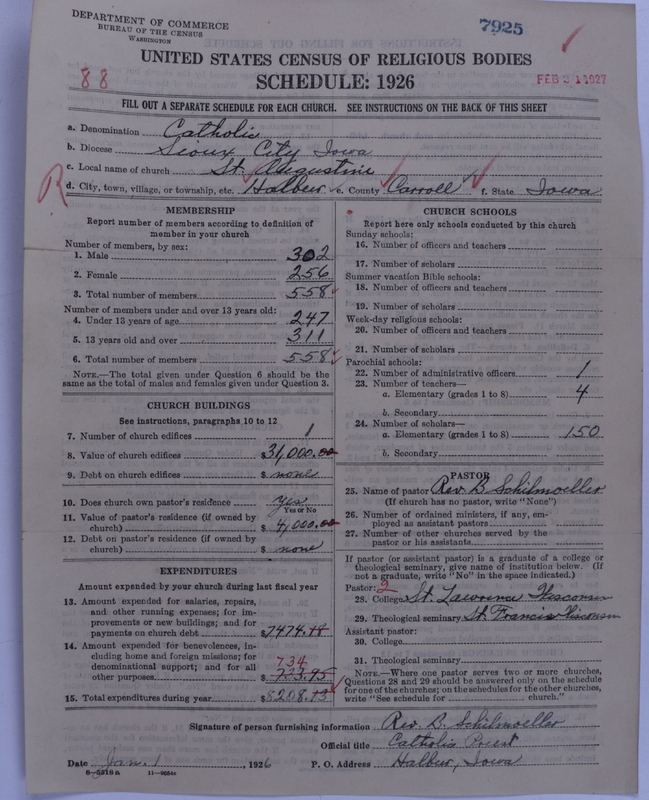 DEPARTMENT OF COMMERCE
BUREAU OF THE CENSUS
WASHINGTON
7925
UNITED STATES CENSUS OF RELIGIOUS BODIES
88
SCHEDULE: 1926
FEB 1 1927
FILL OUT A SEPARATE SCHEDULE FOR EACH CHURCH. SEE INSTRUCTIONS ON THE BACK OF THIS SHEET
a. Denomination Catholic
b. Diocese Sioux City Iowa
c. Local name of church St. Augustine
R
d. City, town, village, or township, etc. Halbur e. County Carroll f. State Iowa
MEMBERSHIP
Report number of members according to definition of
member in your church
Number of members, by sex:
1. Male 302
2. Female 256
3. Total number of members 558
Number of members under and over 13 years old:
4. Under 13 years of age 247
5. 13 years old and over 311
6. Total number of members 558
NOTE.—The total given under Question 6 should be the
same as the total of males and females given under Question 3.
CHURCH BUILDINGS
See instructions, paragraphs 10 to 12
7. Number of church edifices 1
8. Value of church edifices $31,000.00
9. Debt on church edifices $ none
10. Does church own pastor's residence yes
Yes or No
11. Value of pastor's residence (if owned by
church) $4,000.00
12. Debt on pastor's residence (if owned by
church) $ none
EXPENDITURES
Amount expended by your church during last fiscal year
13. Amount expended for salaries, repairs,
and other running expenses; for im-
provements or new buildings; and for
payments on church debt $7474.18
14. Amount expended for benevolences, in-
cluding home and foreign missions; for
denominational support; and for all
734
other purposes $733.95
15. Total expenditures during year $8208.13
CHURCH SCHOOLS
Report here only schools conducted by this church
Sunday schools:
16. Number of officers and teachers
17. Number of scholars
Summer vacation Bible schools:
18. Number of officers and teachers
19. Number of scholars
Week-day religious schools:
20. Number of officers and teachers
21. Number of scholars
Parochial schools:
22. Number of administrative officers 1
23. Number of teachers—
a. Elementary (grades 1 to 8) 4
b. Secondary
24. Number of scholars—
a. Elementary (grades 1 to 8) 150
b. Secondary
PASTOR
25. Name of pastor Rev. B. Schilmoeller
(If church has no pastor, write "None")
26. Number of ordained ministers, if any, em-
ployed as assistant pastors
27. Number of other churches served by the
pastor or his assistants
If pastor (or assistant pastor) is a graduate of a college or
theological seminary, give name of institution below. (If
not a graduate, write "No" in the space indicated.)
Pastor: 2
28. College St. Lawrence Wisconsin
29. Theological seminary St. Francis Wisconsin
Assistant pastor:
30. College
31. Theological seminary
NOTE.—Where one pastor serves two or more churches,
Questions 28 and 29 should be answered only on the schedule
for one of the churches; on the schedules for the other churches,
write "See schedule for church."
Signature of person furnishing information Rev. B. Schilmoeller
Official title Catholic Priest
Date Jan. 1, 1926 P. O. Address Halbur, Iowa